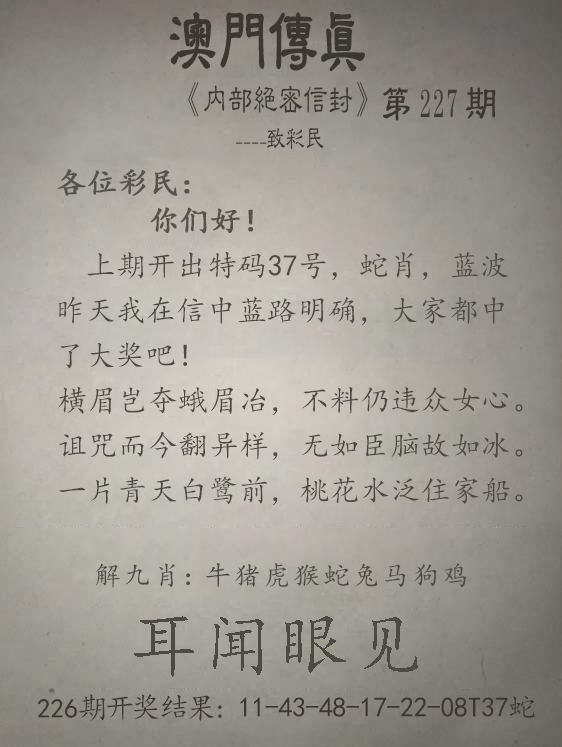 澳門傳眞
《内部絕密信封》第227期
----致彩民
各位彩民：
你们好！
上期开出特码37号，蛇肖，蓝波
昨天我在信中蓝路明确，大家都中
了大奖吧！
横眉岂夺蛾眉冶，不料仍违众女心。
诅咒而今翻异样，无如臣脑故如冰。
一片青天白鹭前，桃花水泛住家船。
解九肖：牛猪虎猴蛇兔马狗鸡
耳闻眼见
226期开奖结果：11-43-48-17-22-08T37蛇